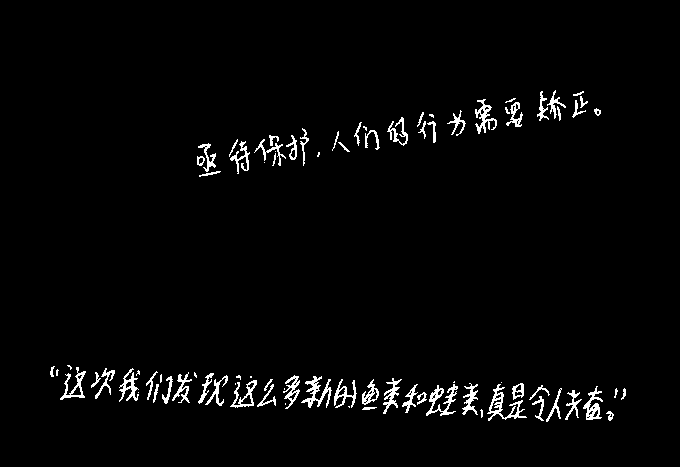 亟待保护，人们的行为需要矫正。
“这次我们发现这么多新的鱼类和蛙类，真是令人夫奋。”